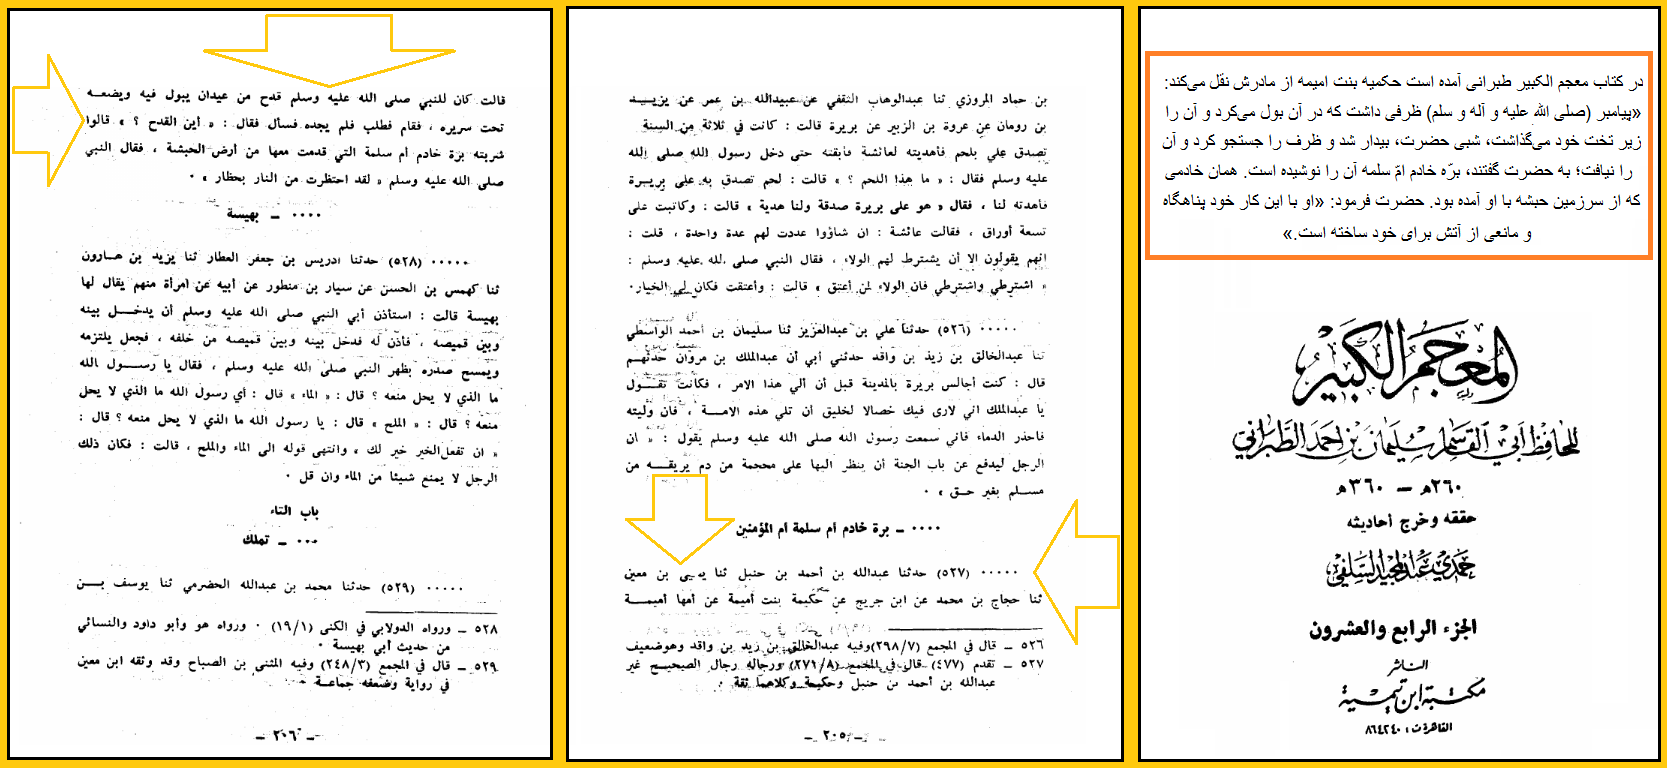 در کتاب معجم الکبیر طبرانی آمده است حکمیه بنت امیمه از مادرش نقل می‌کند:
«پیامبر (صلی الله علیه و آله و سلم) ظرفی داشت که در آن بول می‌کرد و آن را
زیر تخت خود می‌گذاشت، شبی حضرت، بیدار شد و ظرف را جستجو کرد و آن
را نیافت؛ به حضرت گفتند، برّه خادم امّ سلمه آن را نوشیده است. همان خادمی
که از سرزمین حبشه با او آمده بود. حضرت فرمود: «او با این کار خود پناهگاه
و مانعی از آتش برای خود ساخته است.»
المعجم الكبير
للحافظ أبي القاسم سليمان بن احمد الطبراني
٢٦٠هـ – ٣٦٠هـ
حققه وخرج أحاديثه
حمدي عبد المجيد السلفي
الجزء الرابع والعشرون
الناشر
مكتبة ابن تيمية
القاهرة ت: ٨٦٤٢٤٠
بن حماد المروزي ثنا عبدالوهاب الثقفي عن عبيدالله بن عمر عن يزيد
بن رومان عن عروة بن الزبير عن بريرة قالت : كانت في ثلاثة من السنة
تصدق علي بلحم فأهديته لعائشة فأبقته حتى دخل رسول الله صلى الله
عليه وسلم فقال : « ما هذا اللحم ؟ » قالت : لحم تصدق به على بريرة
فأهدته لنا ، فقال « هو على بريرة صدقة ولنا هدية » قالت : وكاتبت على
تسعة أوراق ، فقالت عائشة : ان شاؤوا عددت لهم عدة واحدة ، قلت :
انهم يقولون الا أن يشترط لهم الولاء ، فقال النبي صلى الله عليه وسلم :
« اشترطي واشترطي فان الولاء لمن أعتق » قالت : وأعتقت فكان لي الخيار.
..... (٥٢٦) حدثنا علي بن عبدالعزيز ثنا سليمان بن أحمد الواسطي
ثنا عبدالخالق بن زيد بن واقد حدثني أبي أن عبدالملك بن مروان حدثهم
قال : كنت أجالس بريرة بالمدينة قبل أن ألي هذا الامر ، فكانت تقول
يا عبدالملك اني لارى فيك خصالا لخليق أن تلي هذه الامة ، فان وليته
فاحذر الدماء فاني سمعت رسول الله صلى الله عليه وسلم يقول : « ان
الرجل ليدفع عن باب الجنة أن ينظر اليها على محجمة من دم يريقه من
مسلم بغير حق » .
.... ــ برة خادم أم سلمة أم المؤمنين
..... (٥٢٧) حدثنا عبدالله بن أحمد بن حنبل ثنا يحيى بن معين
ثنا حجاج بن محمد عن ابن جريج عن حكيمة بنت أميمة عن أمها أميمة
٥٢٦ ــ قال في المجمع (٢٩٨/٧) وفيه عبدالخالق بن زيد بن واقد وهو ضعيف
٥٢٧ ــ تقدم (٤٧٧) قال في المجمع (٢٧١/٨) ورجاله رجال الصحيح غير
عبدالله بن أحمد بن حنبل وحكيمة وكلاهما ثقة .
ــ ٢٠٥ ــ
قالت كان للنبي صلى الله عليه وسلم قدح من عيدان يبول فيه ويضعه
تحت سريره ، فقام فطلب فلم يجده فسأل فقال : « أين القدح ؟ » قالوا
شربته برة خادم أم سلمة التي قدمت معها من أرض الحبشة ، فقال النبي
صلى الله عليه وسلم « لقد احتظرت من النار بحظار » .
.... ــ بهيسة
..... (٥٢٨) حدثنا ادريس بن جعفر العطار ثنا يزيد بن هارون
ثنا كهمس بن الحسن عن سيار بن منظور عن أبيه عن امرأة منهم يقال لها
بهيسة قالت : استأذن أبي النبي صلى الله عليه وسلم أن يدخل بينه
وبين قميصه ، فأذن له فدخل بينه وبين قميصه من خلفه ، فجعل يلتزمه
ويمسح صدره بظهر النبي صلى الله عليه وسلم ، فقال يا رسول الله
ما الذي لا يحل منعه ؟ قال : « الماء » قال : أي رسول الله ما الذي لا يحل
منعه ؟ قال : « الملح » قال : يا رسول الله ما الذي لا يحل منعه ؟ قال :
« ان تفعل الخير خير لك » وانتهى قوله الى الماء والملح ، قالت : فكان ذلك
الرجل لا يمنع شيئا من الماء وان قل .
باب التاء
... ــ تملك
..... (٥٢٩) حدثنا محمد بن عبدالله الحضرمي ثنا يوسف بن
٥٢٨ ــ ورواه الدولابي في الكنى (١٩/١) . ورواه هو وأبو داود والنسائي
من حديث أبي بهيسة .
٥٢٩ ــ قال في المجمع (٢٤٨/٣) وفيه المثنى بن الصباح وقد وثقه ابن معين
في رواية وضعفه جماعة
ــ ٢٠٦ ــ